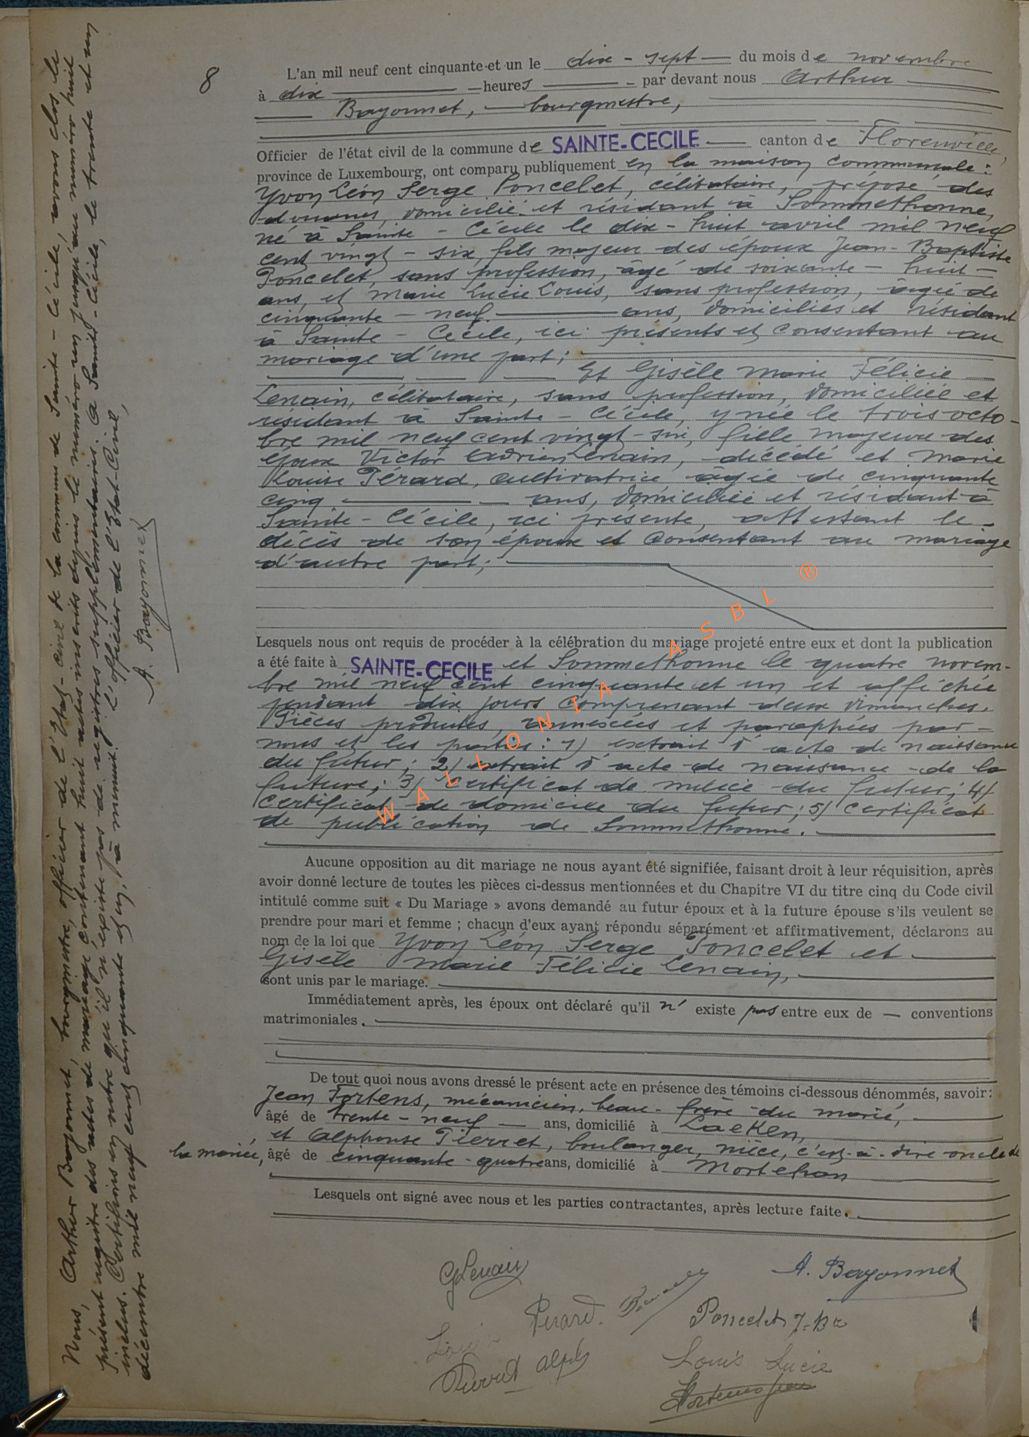 8
L'an mil neuf cent cinquante-et un le dix-sept du mois de novembre
à dix heures par devant nous Arthur
Bayonnet, bourgmestre,
Officier de l'état civil de la commune de SAINTE-CECILE canton de Florenville,
province de Luxembourg, ont comparu publiquement en la maison communale :
Yvon Léon Serge Poncelet, célibataire, préposé des
douanes, domicilié et résidant à Sommethonne,
né à Sainte-Cécile le dix-huit avril mil neuf
cent vingt-six, fils majeur des époux Jean-Baptiste
Poncelet, sans profession, âgé de soixante-huit
ans, et Marie Lucie Louis, sans profession, âgée de
cinquante-neuf ans, domiciliés et résidant
à Sainte-Cécile, ici présents et consentant au
mariage d'une part ;
Et Gisèle Marie Félicie
Lenain, célibataire, sans profession, domiciliée et
résidant à Sainte-Cécile, y née le trois octo-
bre mil neuf cent vingt-six, fille majeure des
époux Victor Adrien Lenain, décédé et Marie
Louise Pérard, cultivatrice âgée de cinquante
cinq ans, domiciliée et résidant à
Sainte-Cécile, ici présente, attestant le
décès de son époux et consentant au mariage
d'autre part ;
Lesquels nous ont requis de procéder à la célébration du mariage projeté entre eux et dont la publication
a été faite à SAINTE-CECILE et Sommethonne le quatre novem-
bre mil neuf cent cinquante et un et affichée
pendant dix jours comprenant deux dimanches.
Pièces produites, annexées et paraphées par
nous et les parties : 1) extrait d'acte de naissance
du futur ; 2) extrait d'acte de naissance de la
future ; 3) certificat de milice du futur ; 4)
certificat de domicile du futur ; 5) certificat
de publication de Sommethonne.
Aucune opposition au dit mariage ne nous ayant été signifiée, faisant droit à leur réquisition, après
avoir donné lecture de toutes les pièces ci-dessus mentionnées et du Chapitre VI du titre cinq du Code civil
intitulé comme suit « Du Mariage » avons demandé au futur époux et à la future épouse s'ils veulent se
prendre pour mari et femme ; chacun d'eux ayant répondu séparément et affirmativement, déclarons au
nom de la loi que Yvon Léon Serge Poncelet et
Gisèle Marie Félicie Lenain,
sont unis par le mariage.
Immédiatement après, les époux ont déclaré qu'il n' existe pas entre eux de conventions
matrimoniales.
De tout quoi nous avons dressé le présent acte en présence des témoins ci-dessous dénommés, savoir :
Jean Fortens, mécanicien, beau-frère du marié,
âgé de trente-neuf ans, domicilié à Laeken,
et Alphonse Pierret, boulanger, nièce, c'est-à-dire oncle de
la mariée, âgé de cinquante-quatre ans, domicilié à Mortehan
Lesquels ont signé avec nous et les parties contractantes, après lecture faite.
G Lenain
A. Bayonnet
Pérard.
Poncelet J-Bte
Pierret Alph
Louis Lucie
Fortens Jean
Nous, Arthur Bayonnet, bourgmestre, officier de l'Etat-civil de la commune de Sainte-Cécile, avons clos le
présent registre des actes de mariage contenant huit actes inscrits depuis le numéro un jusqu'au numéro huit
inclus. Certifions en outre qu'il n'existe pas de registres supplémentaires. A Sainte-Cécile, le trente et un
décembre mil neuf cent cinquante et un, à minuit. L'officier de l'Etat-Civil,
A. Bayonnet
WALLONIA ASBL ®